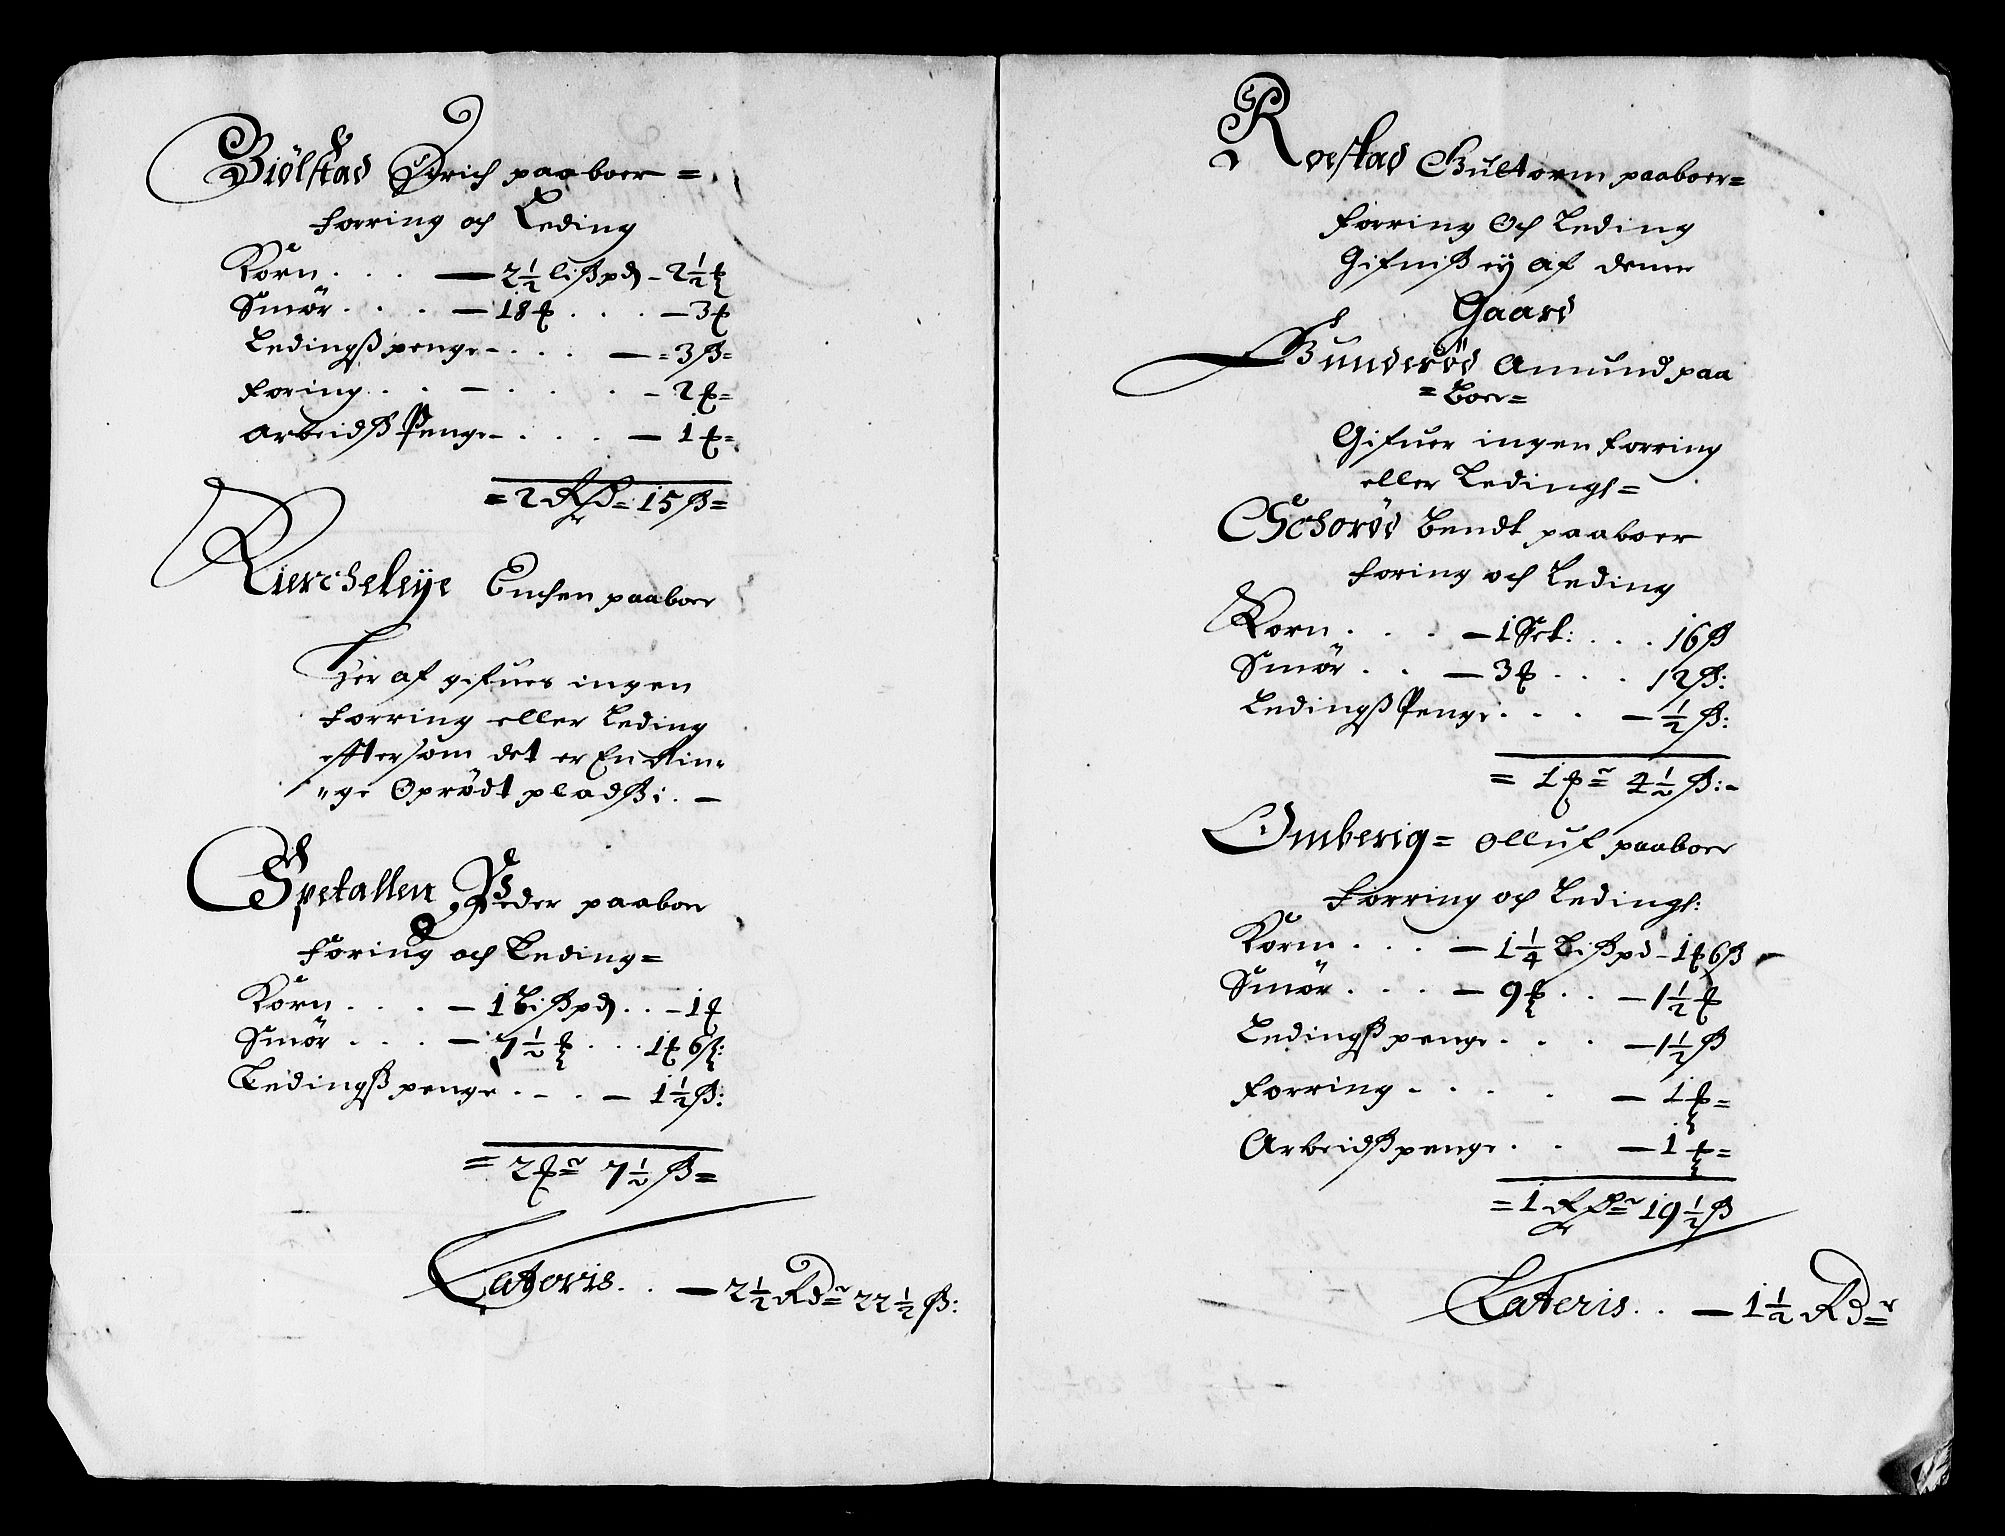 Biölstad Erich paaboer =
Forring och Leding
Korn . . . — 2 1/2 lißpd - 2 1/2 ℔
Smör . . . — 18 ℔ . . . — 3 ℔
Ledingßpenge - . . . — = 3 ß =
Foring . . . — . . . - 2 ℔ =
Arbeidß Penge - . . . — 1 ℔ =
= 2 Rd = 15 ß =
Kiercheleije paaboer
Her af gifues ingen
Forring eller Leding
effter som det er En Rin=
"ge Oprödt pladß: . —
Spetallen Peder paaboer
Foring och Leding =
Korn . . . — 1 Lißpd . . - 1 ℔
Smör . . . — 7 1/2 ℔ . . . 1 ℔ 6 ß:
Ledingßpenge . - . — 1 1/2 ß:
= 2 ℔ 7 1/2 ß =
Lateris . . — 2 1/2 Rdr 22 1/2 ß:
Roestad Gultorm paaboer =
Forring Och Leding
Gifniß ey af denne
Gaard
Gunderöd Amund paa
= Boer =
Gifuer ingen Forring
eller Ledings =
Schoröd Bendt paaboer
Foring och Leding
Korn . . . — 1 Set: . . . 16 ß
Smör . . — 3 ℔ . . . 12 ß:
Ledingß Penge . . . — 1/2 ß:
= 1 ℔ 4 1/2 ß: -
Omberig = Olluf paaboer
Forring och Ledings:
Korn . . . — 1 1/4 Lißpd - 1 ℔ 6 ß
Smör . . . — 9 ℔ . . — 1 1/2 ℔
Ledingßpenge . . . — 1 1/2 ß
Forring . . . . — 1 ℔ =
Arbeidßpenge . . — 1 ℔ =
= 1 Rdr 19 1/2 ß
Lateris . . — 1 1/2 Rdr